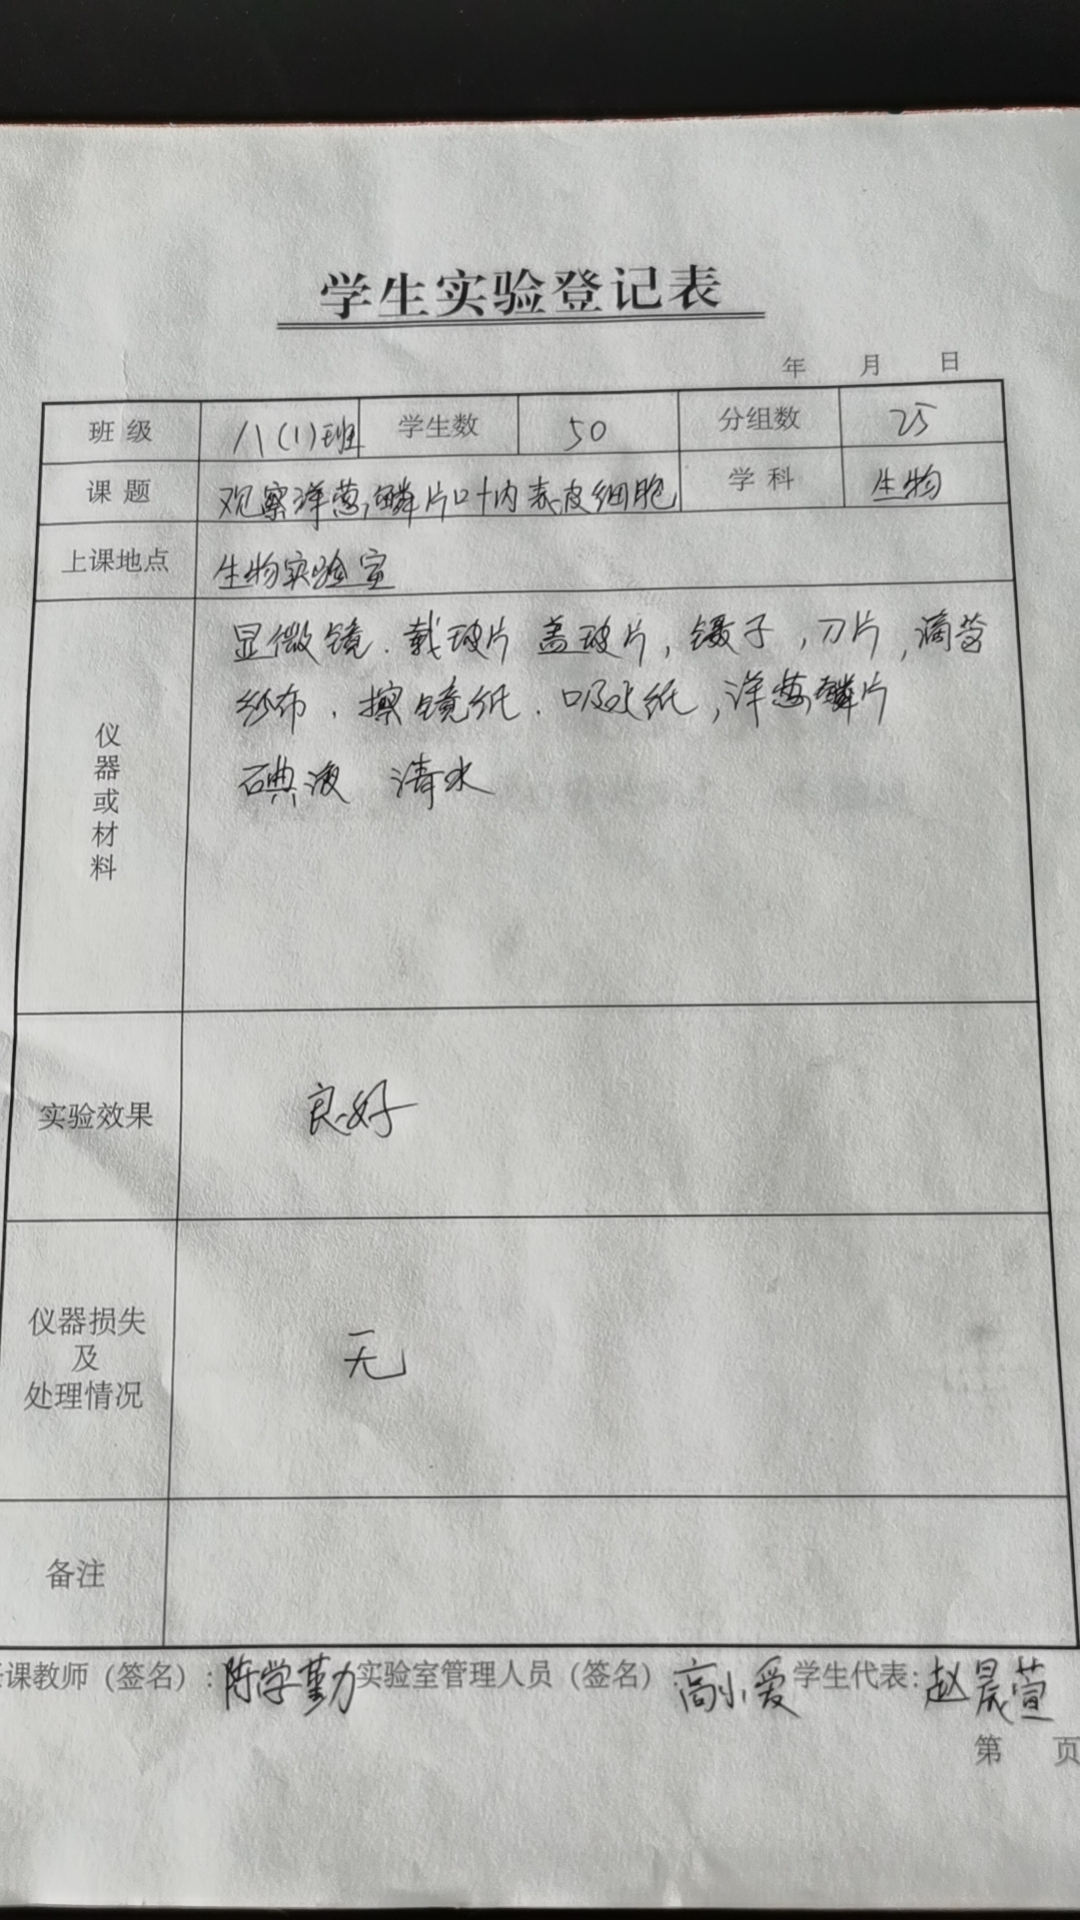 学生实验登记表
年 月 日
班级 八(1)班 学生数 50 分组数 25
课题 观察洋葱鳞片叶内表皮细胞 学科 生物
上课地点 生物实验室
仪器或材料
显微镜.载玻片 盖玻片,镊子,刀片,滴管
纱布.擦镜纸.吸水纸,洋葱鳞片
碘液 清水
实验效果 良好
仪器损失
及
处理情况
无
备注
课教师(签名):陈学勤 实验室管理人员(签名) 高小爱 学生代表:赵晨萱
第 页